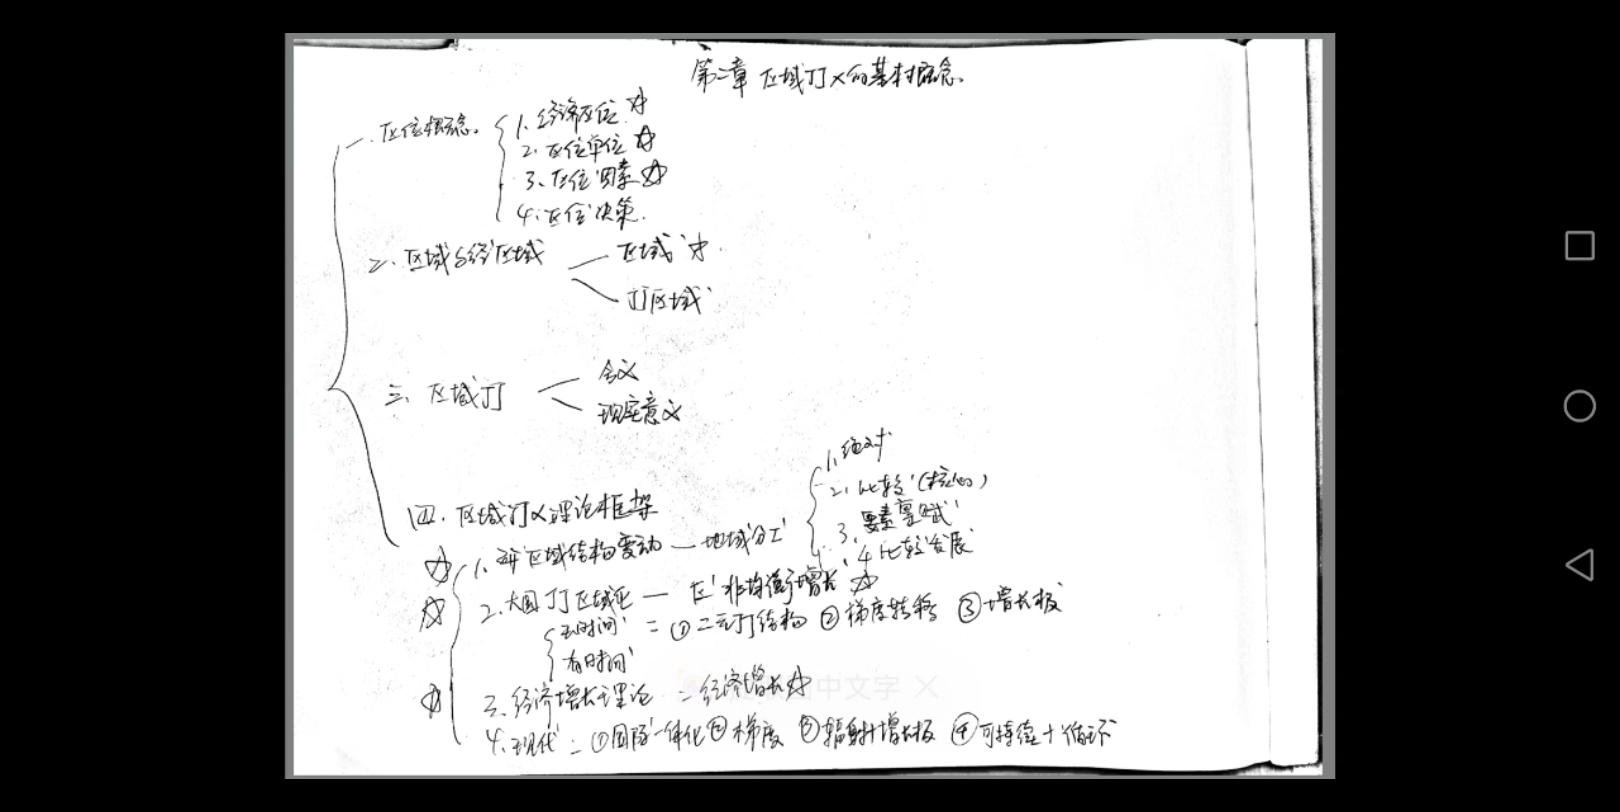 第二章 区域丁丁x的基本概念.
一.区位概念。
1.经济区位 ☆
2.区位单位 ☆
3、区位因素 ☆
4.区位决策.
二.区域与经区域
区域
丁丁区域
三、区域丁丁
含义
现实意义
四.区域丁丁x理论框架
☆ 1.区域结构变动 — 地域分工
1.绝对
2.比较(核心)
3.要素禀赋
4.比较发展
☆ 2.大国丁丁区域化 — 区非均衡增长 ☆
无时间 = ①二元丁丁结构 ②梯度转移 ③增长极
有时间
☆ 3.经济增长理论 = 经济增长 ☆
中文字
4.现代 = ①国际一体化 ②梯度 ③辐射+增长极 ④可持续+循环